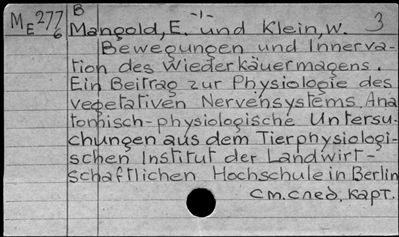 B -1- 3
ME 277/6 Mangold, E. und Klein, W.
Bewegungen und Innerva-
tion des Wiederkäuermagens.
Ein Beitrag zur Physiologie des
vegetativen Nervensystems. Ana
tomisch-physiologische Untersu-
chungen aus dem Tierphysiologi-
schen Institut der Landwirt-
schaftlichen Hochschule in Berlin
См. след. карт.